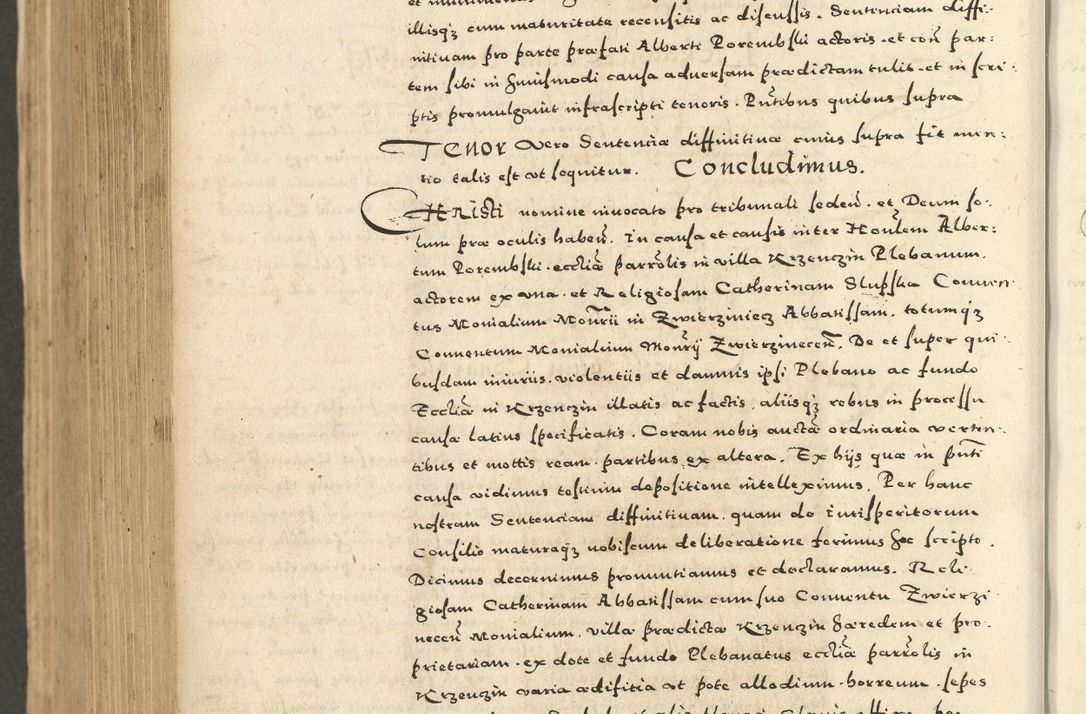 illisqꝫ cum maturitate recensitis ac discussis. Sententiam diffi-
nitiuam pro parte præfati Alberti Porembski actoris. et coñ par-
tem sibi in huiusmodi causa aduersam prædictam tulit. et in scri-
ptis promulgauit infrascripti tenoris. Pñtibus quibus supra
TENOR vero Sententiæ diffinitiuæ cuius supra fit men-
tio talis est vt sequitur. Concludimus.
CHRISTI nomine inuocato pro tribunali sedeñ. et Deum so-
lum præ oculis habeñ. In causa et causis inter Honlem Alber-
tum Porembski. eccliæ parrolis in villa Krzenczin Plebanum.
actorem ex vna. et Religiosam Catherinam Slupska Conuen-
tus Monialium Monrii in Zwierziniecz Abbatissam. totumqꝫ
Conuentum Monialium Monrij Zwierzineceñ. De et super qui-
busdam iniuriis. violentiis et damnis ipsi Plebano ac fundo
Eccliæ in Krzenczin illatis ac factis. aliisqꝫ rebus in processu
causæ latius specificatis. Coram nobis auctæ ordinaria verten-
tibus et mottis ream. partibus ex altera. Ex hijs quæ in pñti
causa vidimus testium depositione intelleximus. Per hanc
nostram Sententiam diffinitiuam. quam de iurisperitorum
Consilio maturaqꝫ nobiscum deliberatione ferimus hoc scripto.
Dicimus decernimus pronuntiamus et declaramus. Reli-
giosam Catherinam Abbatissam cum suo Conuentu Zwierzi-
neceñ Monialium. villæ prædictæ Krzenczin hæredem et pro-
prietariam. ex dote et fundo Plebanatus eccliæ parrolis in
Krzenczin varia ædifitia vt pote allodium. horreum. sepes